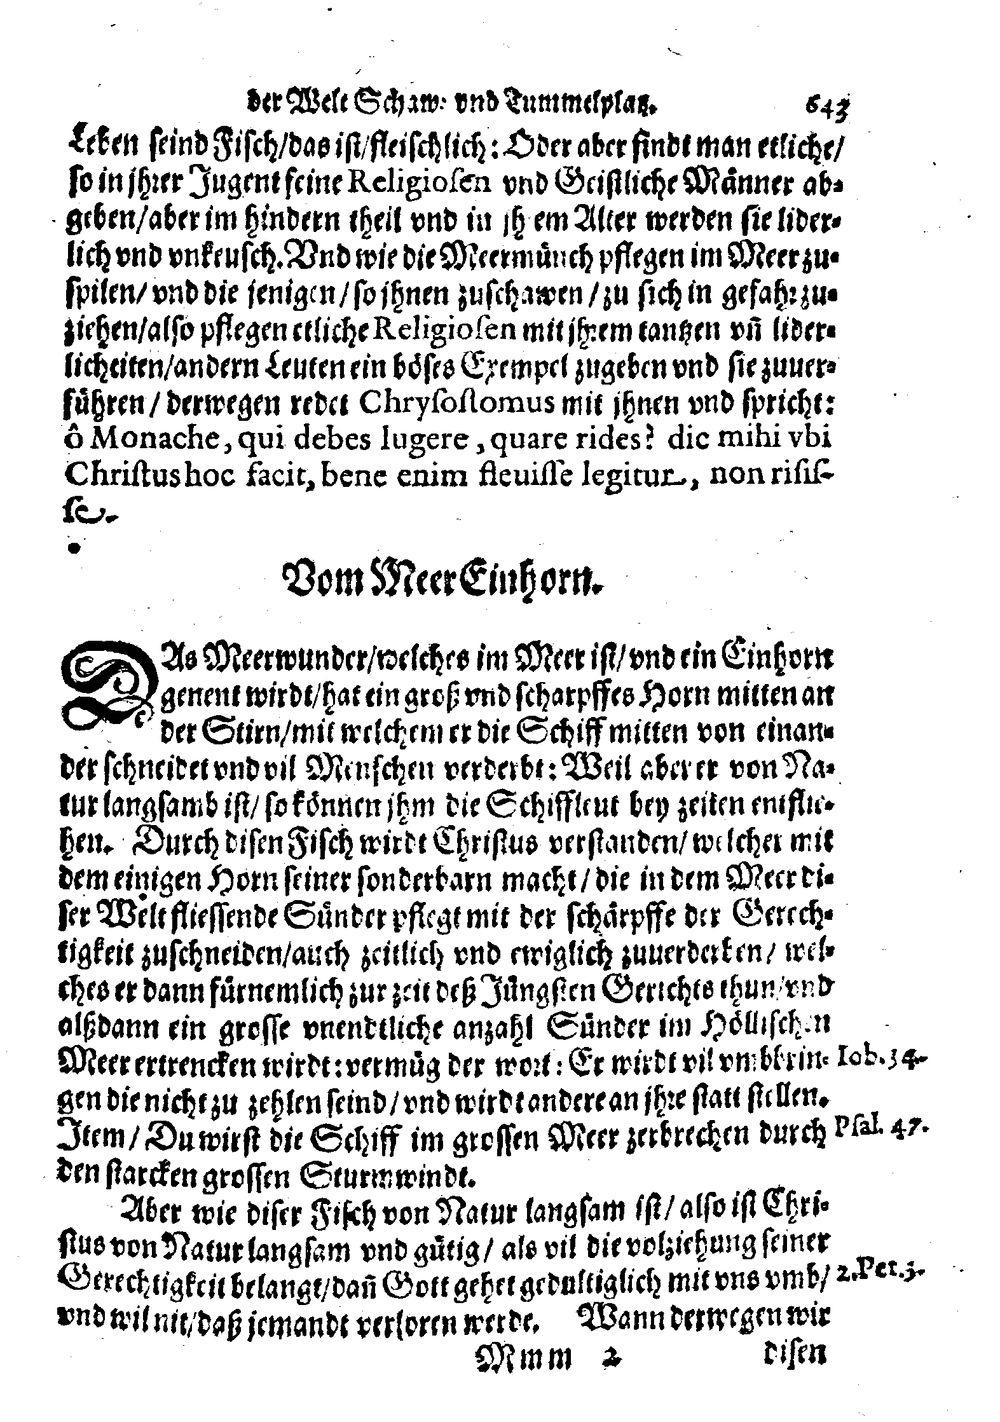 der Welt Schaw: vnd Tummelplatz. 643
Leben seind Fisch/das ist/fleischlich: Oder aber findt man etliche/
so in jhrer Jugent feine Religiosen vnd Geistliche Männer ab-
geben/aber im hindern theil vnd in jh em Alter werden sie lider-
lich vnd vnkeusch. Vnd wie die Meermünch pflegen im Meer zu-
spilen/ vnd die jenigen/so jhnen zuschawen/zu sich in gefahr zu-
ziehen/also pflegen etliche Religiosen mit jhrem tantzen vñ lider-
licheiten/andern Leuten ein böses Exempel zugeben vnd sie zuuer-
führen/ derwegen redet Chrysostomus mit jhnen vnd spricht:
ô Monache, qui debes lugere, quare rides? dic mihi vbi
Christus hoc facit, bene enim fleuisse legitur, non risis-
se.
Vom Meer Einhorn.
DAs Meerwunder/welches im Meer ist/ vnd ein Einhorn
genent wirdt/hat ein groß vnd scharpffes Horn mitten an
der Stirn/mit welchem er die Schiff mitten von einan-
der schneidet vnd vil Menschen verderbt: Weil aber er von Na-
tur langsamb ist/ so können jhm die Schiffleut bey zeiten entflie-
hen. Durch disen Fisch wirdt Christus verstanden/ welcher mit
dem einigen Horn seiner sonderbarn macht/ die in dem Meer di-
ser Welt fliessende Sünder pflegt mit der schärpffe der Gerech-
tigkeit zuschneiden/auch zeitlich vnd ewiglich zuuerderben/ wel-
ches er dann fürnemlich zur zeit deß Jüngsten Gerichts thun/vnd
alßdann ein grosse vnendtliche anzahl Sünder im Höllischen
Meer ertrencken wirdt: vermüg der wort: Er wirdt vil vmbbrin- Iob. 34.
gen die nicht zu zehlen seind/ vnd wirdt andere an jhre statt stellen.
Item/ Du wirst die Schiff im grossen Meer zerbrechen durch Psal. 47.
den starcken grossen Sturmwindt.
Aber wie diser Fisch von Natur langsam ist/ also ist Chri-
stus von Natur langsam vnd gütig/ als vil die volziehung seiner
Gerechtigkeit belangt/dañ Gott gehet gedultiglich mit vns vmb/ 2. Pet. 3.
vnd wil nit/daß jemandt verloren werde. Wann derwegen wir
Mmm 2 disen